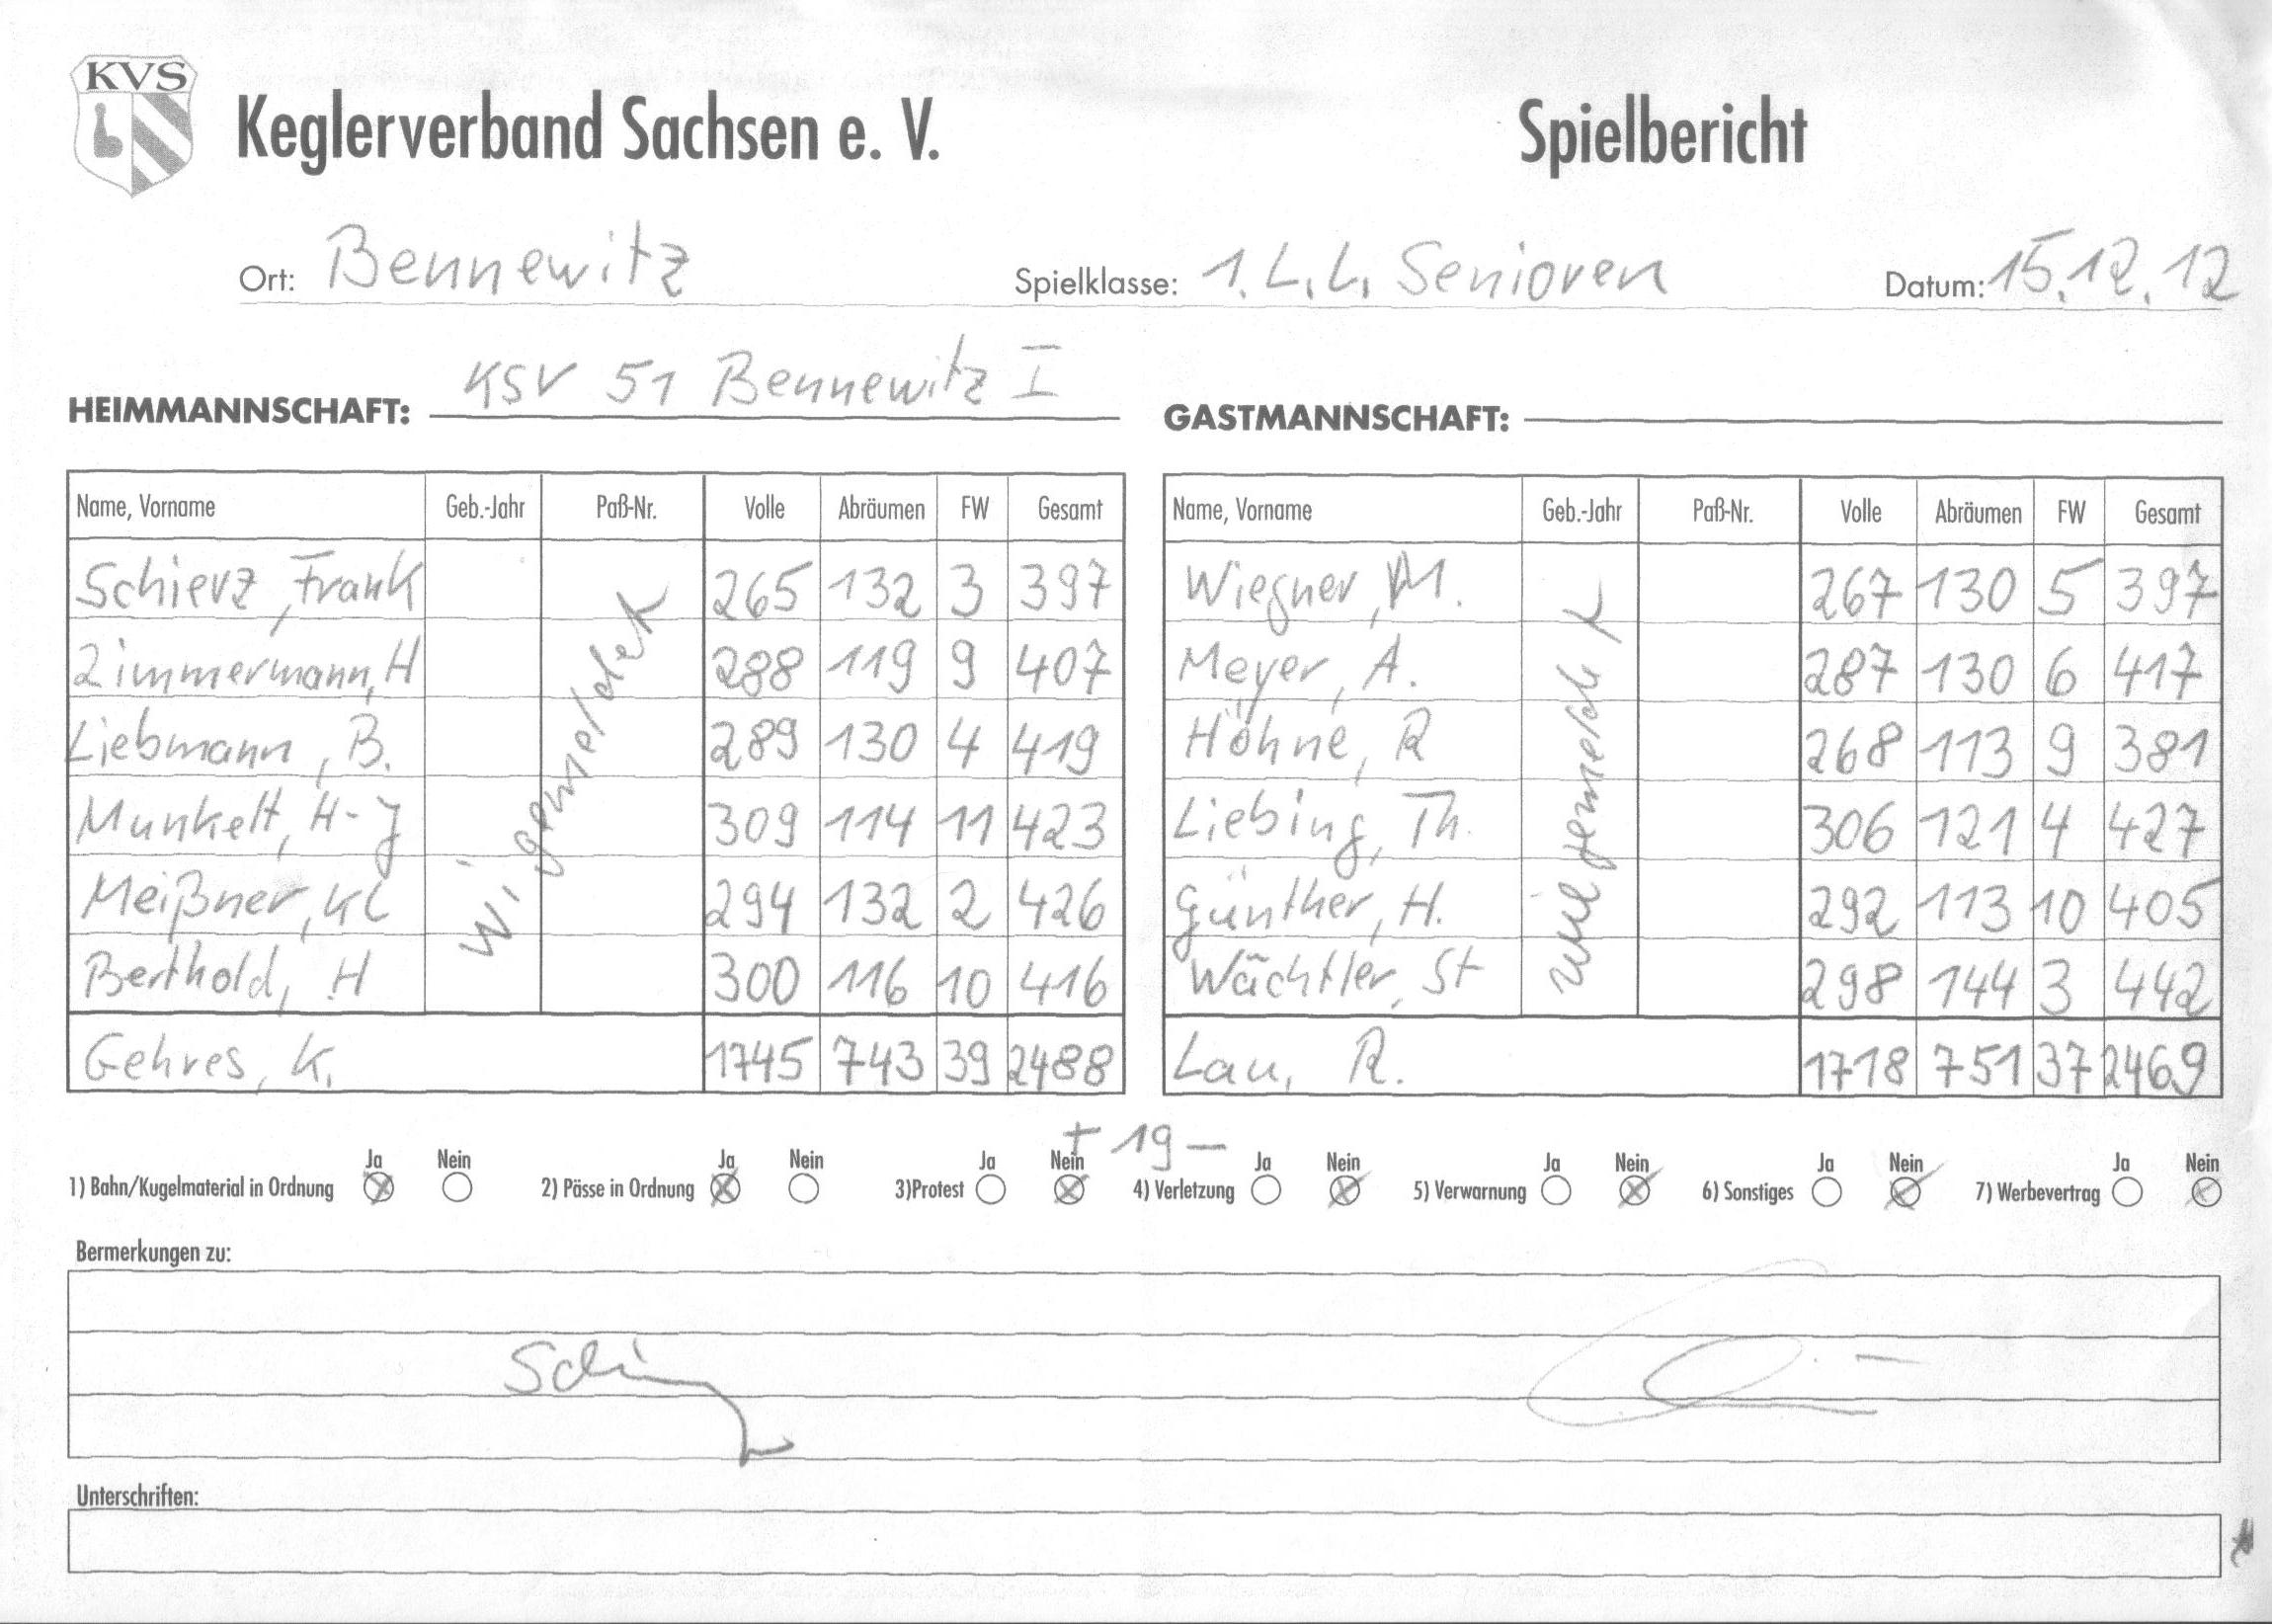 KVS
Keglerverband Sachsen e. V. Spielbericht
Ort: Bennewitz Spielklasse: 1. L. L. Senioren Datum: 15.12.12
HEIMMANNSCHAFT: KSV 51 Bennewitz I GASTMANNSCHAFT:
Name, Vorname Geb.-Jahr Paß-Nr. Volle Abräumen FW Gesamt Name, Vorname Geb.-Jahr Paß-Nr. Volle Abräumen FW Gesamt
Schierz, Frank 265 132 3 397 Wiegner, M. 267 130 5 397
Zimmermann, H 288 119 9 407 Meyer, A. 287 130 6 417
Liebmann, B. 289 130 4 419 Höhne, R 268 113 9 381
Munkelt, H-J 309 114 11 423 Liebing, Th. 306 121 4 427
Meißner, Kl 294 132 2 426 Günther, H. 292 113 10 405
Berthold, H 300 116 10 416 Wächtler, St 298 144 3 442
w. gemeldet
wie gemeldet
Gehres, K. 1745 743 39 2488 Lau, R. 1718 751 37 2469
+ 19 –
Ja Nein Ja Nein Ja Nein Ja Nein Ja Nein Ja Nein Ja Nein
1) Bahn/Kugelmaterial in Ordnung 2) Pässe in Ordnung 3)Protest 4) Verletzung 5) Verwarnung 6) Sonstiges 7) Werbevertrag
Bermerkungen zu:
Unterschriften: